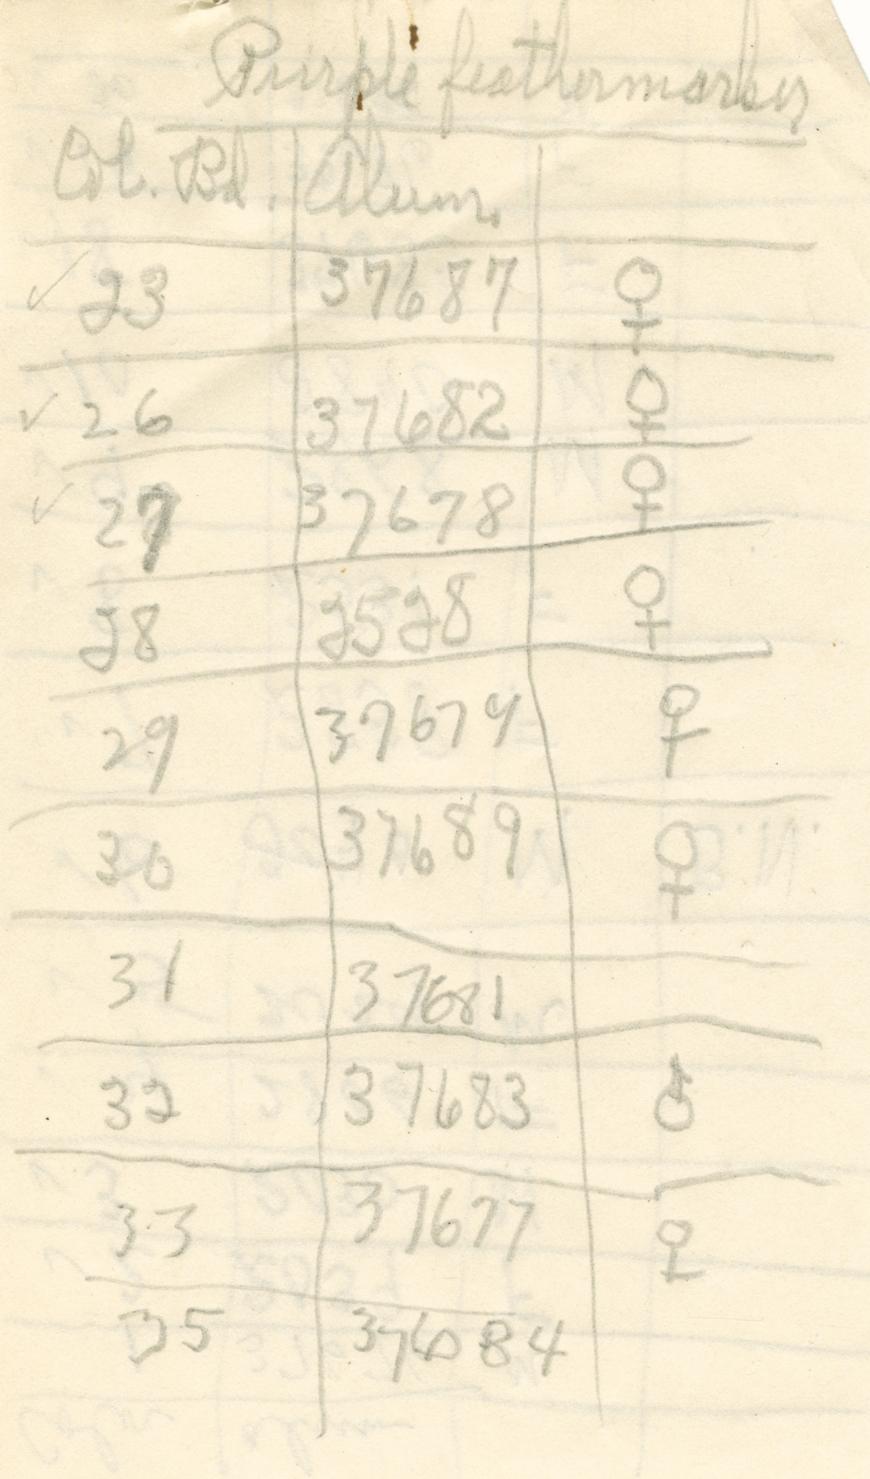 Purple feathermarkers
Col. Bd. Alum.
✓ 23 37687 ♀
✓ 26 37682 ♀
✓ 27 37678 ♀
28 2528 ♀
29 37679 ♀
30 37689 ♀
31 37681
32 37683 ♂
33 37677 ♀
35 37684